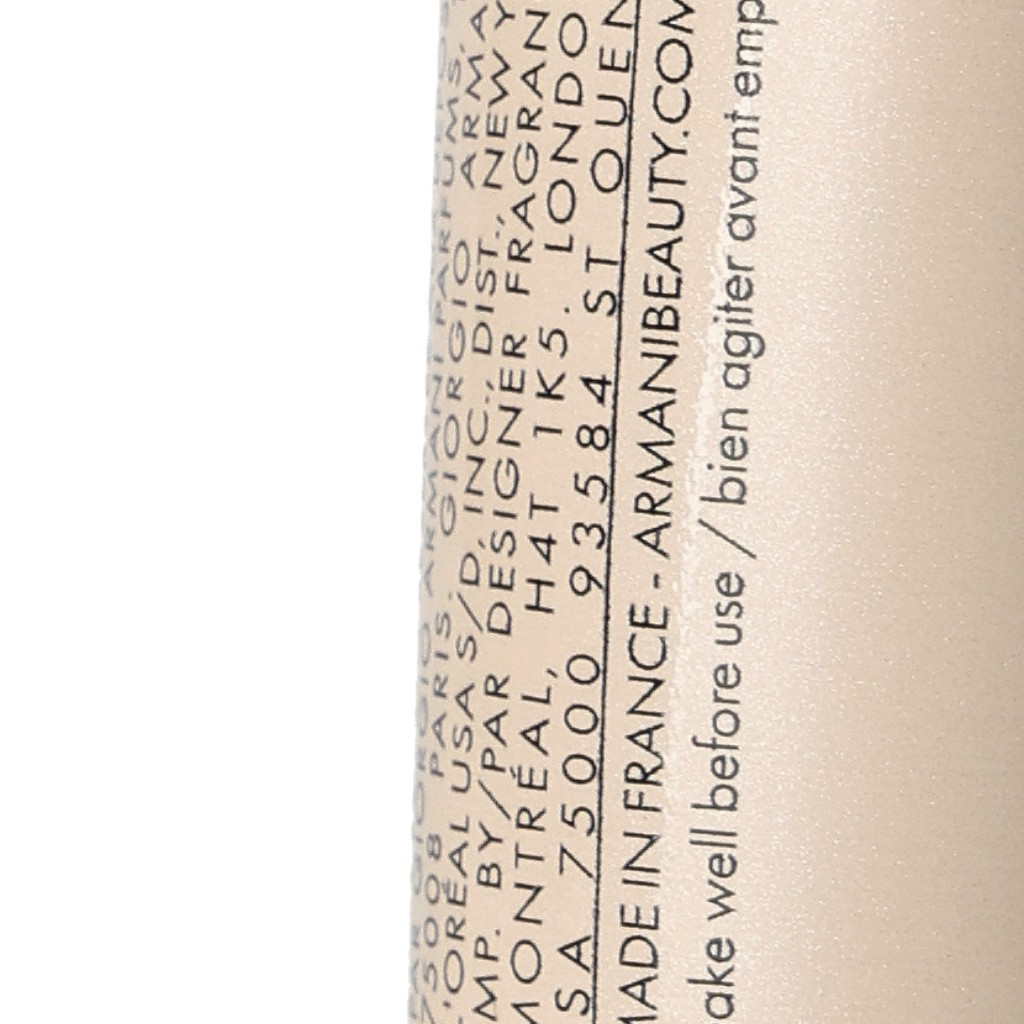 GIORGIO ARMANI PARFUMS,
75008 PARIS. GIORGIO ARMA
L'ORÉAL USA S/D, INC., DIST., NEW Y
MP. BY/PAR DESIGNER FRAGRAN
MONTRÉAL, H4T 1K5. LONDO
SA 75000 93584 ST OUEN
MADE IN FRANCE - ARMANIBEAUTY.COM
ake well before use / bien agiter avant emp